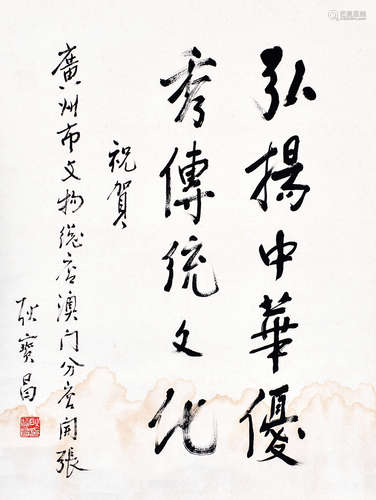 弘揚中華優
秀傳統文化
祝賀
廣州市文物總店澳门分店開張
耿寶昌